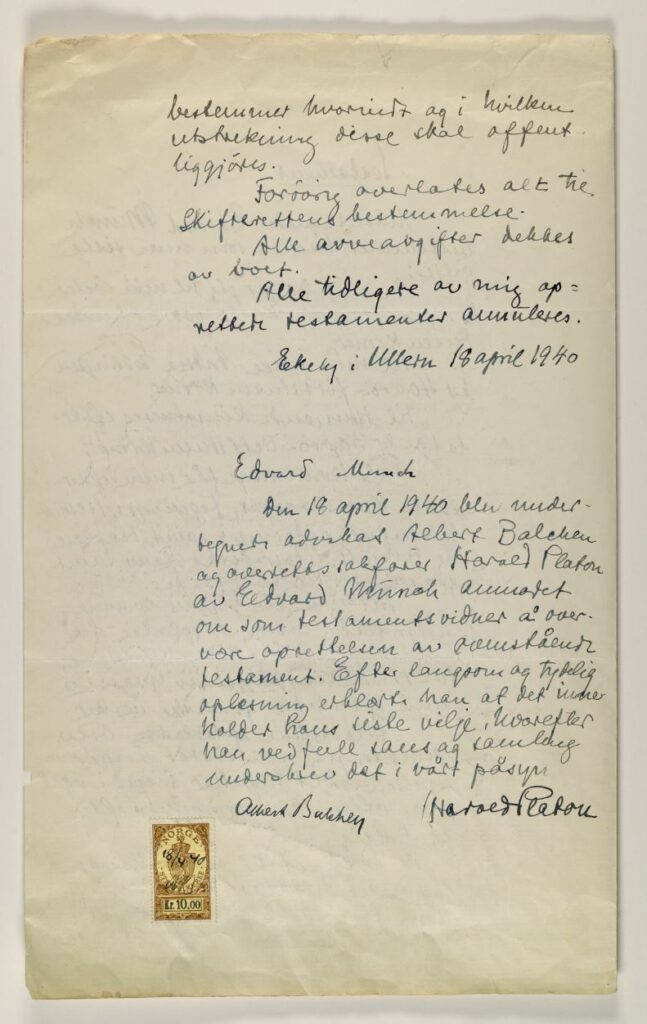 bestemmer hvorvidt og i hvilken
utstrekning disse skal offent-
liggjöres.
Forövrig overlates alt til
Skifterettens bestemmelse.
Alle arveavgifter dekkes
av boet.
Alle tidligere av mig op=
rettede testamenter annuleres.
Ekely i Ullern 18 april 1940
Edvard Munch
Den 18 april 1940 blev under-
tegnete advokat Albert Balchen
og overrettssakfører Harald Platon
av Edvard Munch anmodet
om som testamentsvidner å over-
være oprettelsen av ovenstående
testament. Efter langsom og tydelig
oplesning erklærte han at det inne-
holder hans siste vilje, hvorefter
han ved full sans og samling
underskrev det i vårt påsyn
Albert Balchen Harald Platon
NORGE
18/4 40
Kr. 10,00